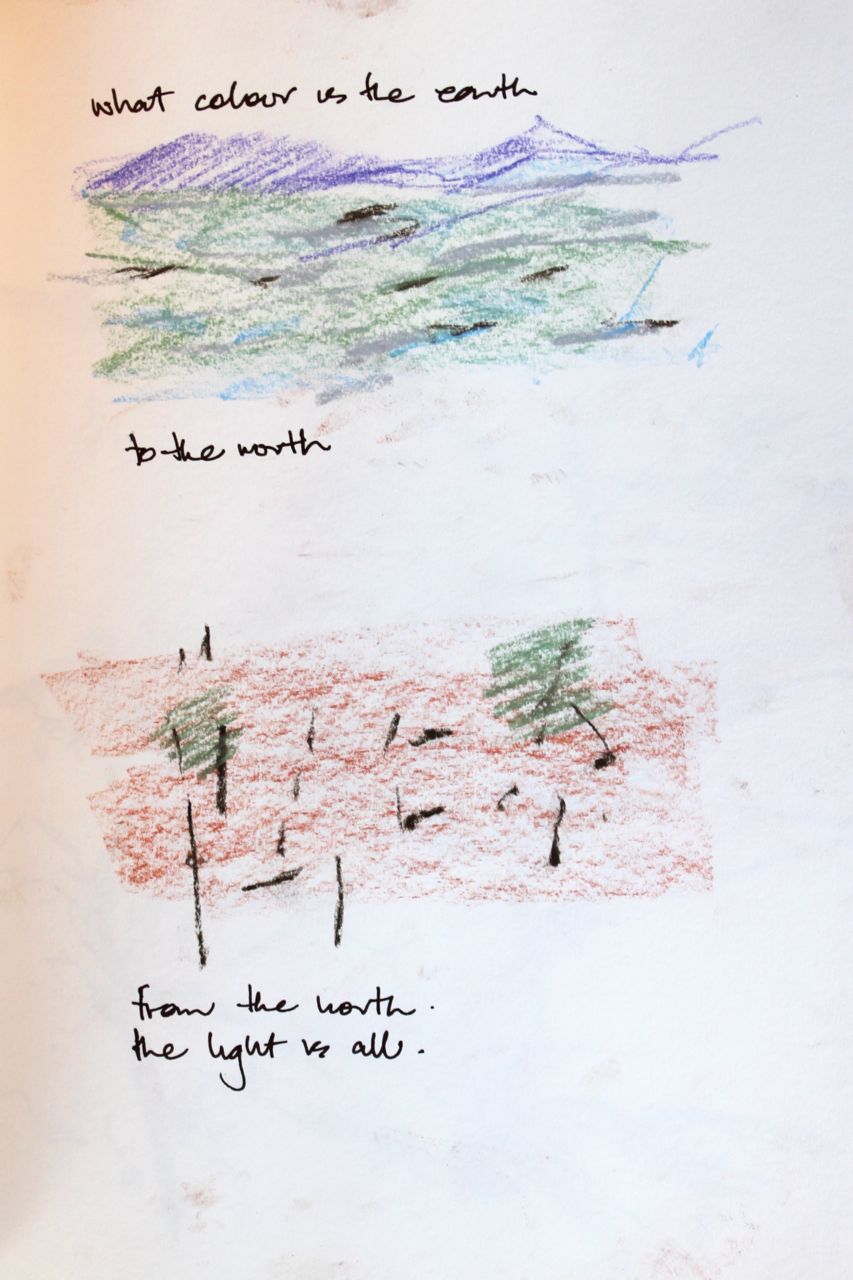 what colour is the earth
to the north
from the north.
the light is all.